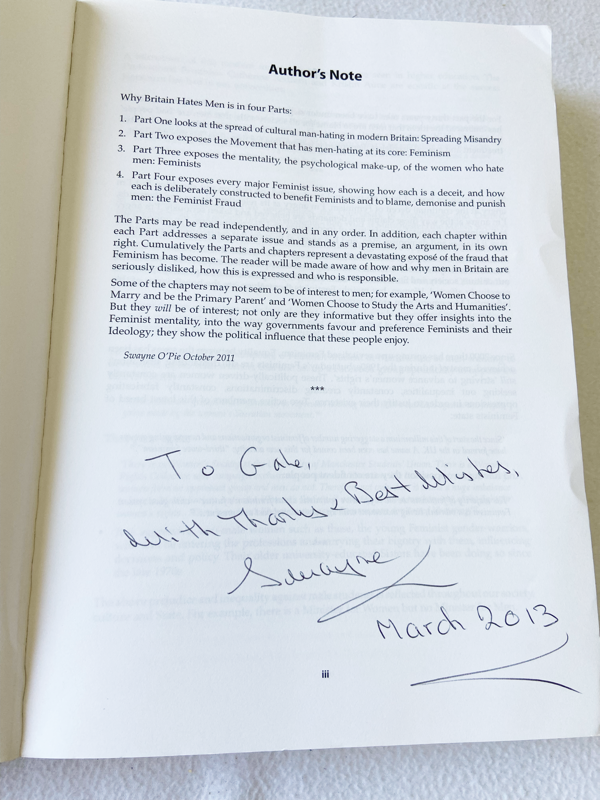 Author's Note
Why Britain Hates Men is in four Parts:
1. Part One looks at the spread of cultural man-hating in modern Britain: Spreading Misandry
2. Part Two exposes the Movement that has men-hating at its core: Feminism
3. Part Three exposes the mentality, the psychological make-up, of the women who hate
men: Feminists
4. Part Four exposes every major Feminist issue, showing how each is a deceit, and how
each is deliberately constructed to benefit Feminists and to blame, demonise and punish
men: the Feminist Fraud
The Parts may be read independently, and in any order. In addition, each chapter within
each Part addresses a separate issue and stands as a premise, an argument, in its own
right. Cumulatively the Parts and chapters represent a devastating exposé of the fraud that
Feminism has become. The reader will be made aware of how and why men in Britain are
seriously disliked, how this is expressed and who is responsible.
Some of the chapters may not seem to be of interest to men; for example, 'Women Choose to
Marry and be the Primary Parent' and 'Women Choose to Study the Arts and Humanities'.
But they will be of interest; not only are they informative but they offer insights into the
Feminist mentality, into the way governments favour and preference Feminists and their
Ideology; they show the political influence that these people enjoy.
Swayne O'Pie October 2011
***
To Gale,
With Thanks & Best Wishes,
Swayne
March 2013
iii